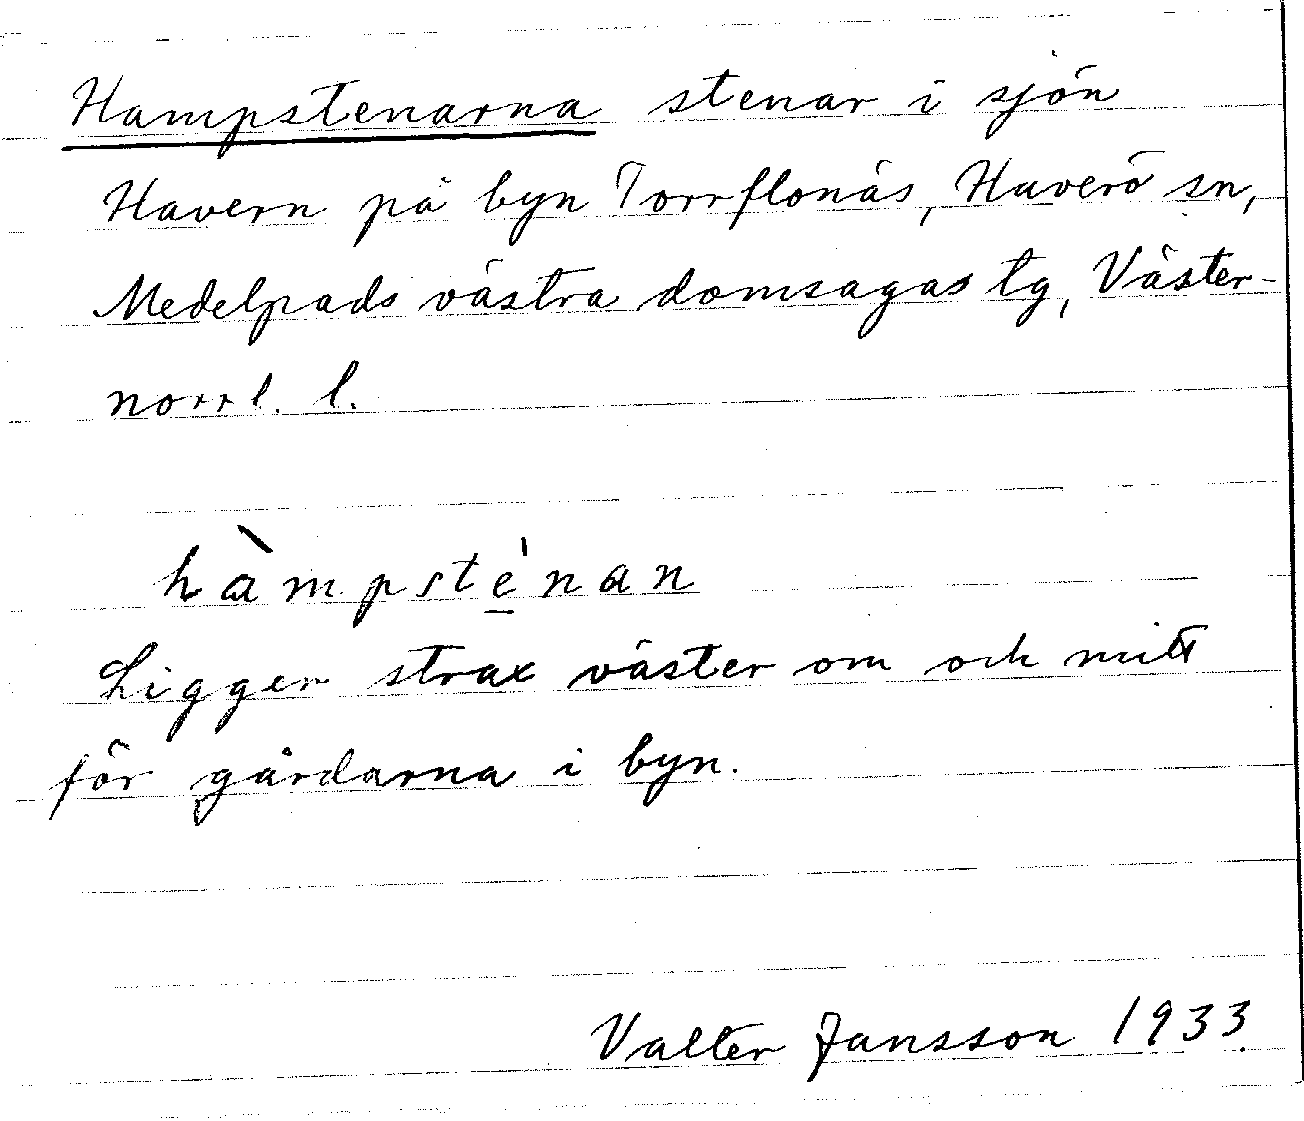 Hampstenarna stenar i sjön
Havern på byn Torrflonäs, Haverö sn,
Medelpads västra domsagas tg, Väster-
norrl. l.
hàmpste̠̍nan
Ligger strax väster om och mitt
för gårdarna i byn.
Valter Jansson 1933